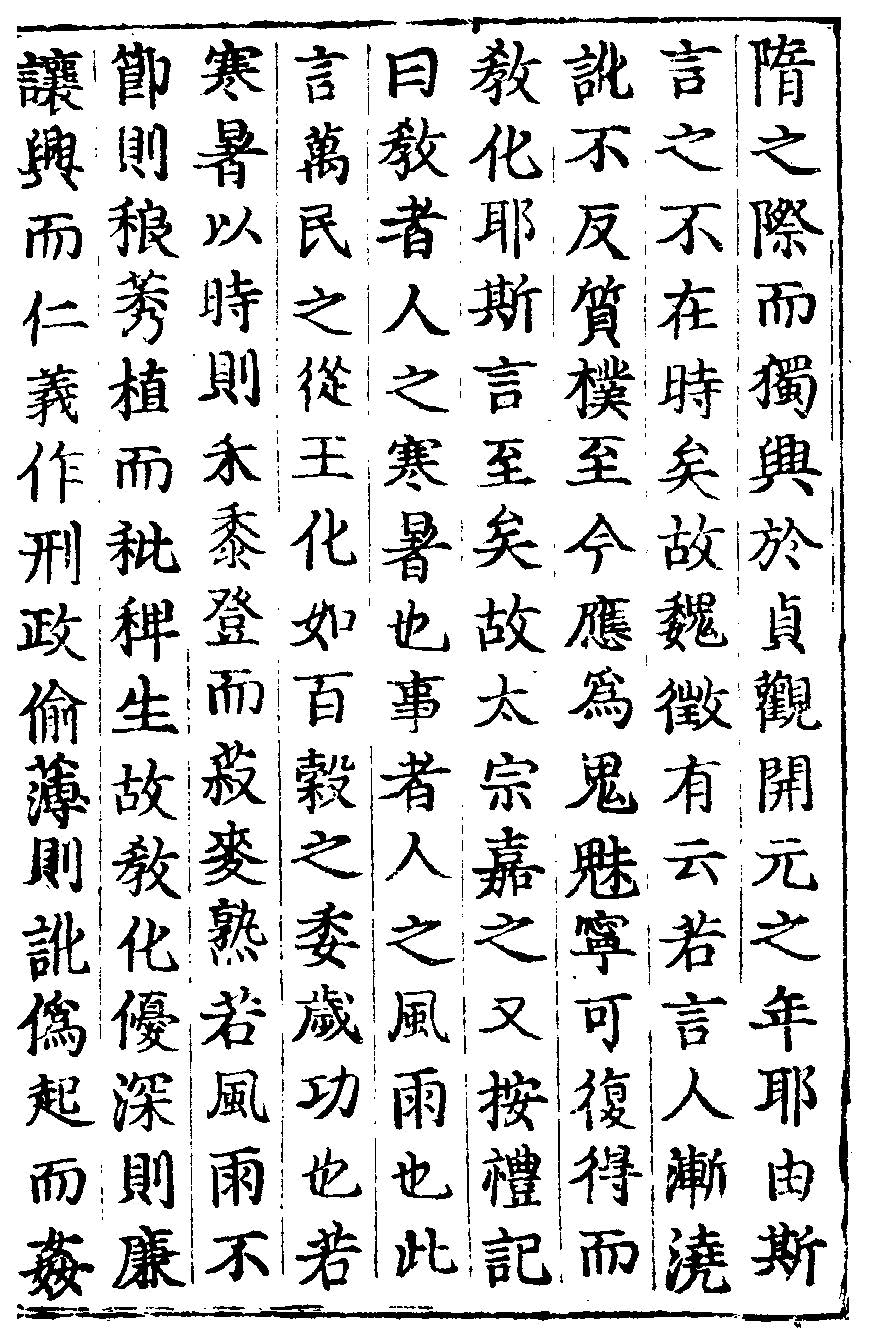 隋之際而獨興於貞觀開元之年耶由斯
言之不在時矣故魏徵有云若言人漸澆
訛不反質樸至今應爲鬼魅寧可復得而
教化耶斯言至矣故太宗嘉之又按禮記
曰教者人之寒暑也事者人之風雨也此
言萬民之從王化如百穀之委歲功也若
寒暑以時則禾黍登而菽麥熟若風雨不
節則稂莠植而秕稗生故教化優深則廉
讓興而仁義作刑政偷薄則訛僞起而姦